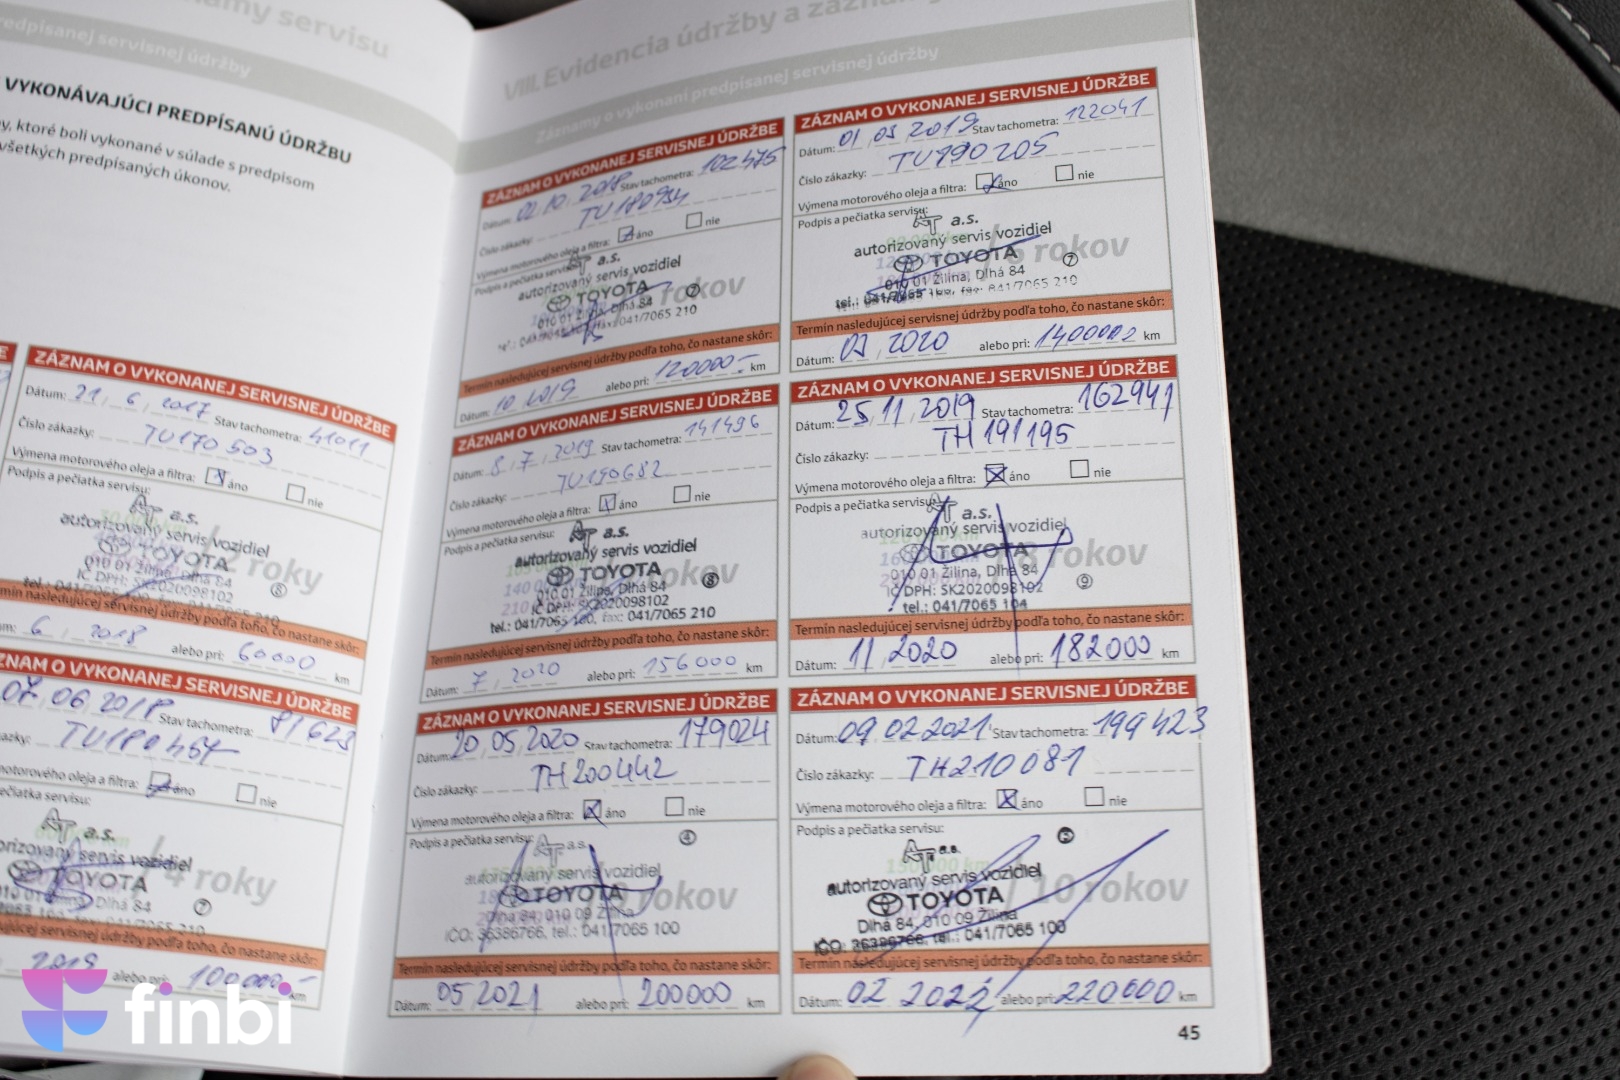 my servisu
redpísanej servisnej údržby
VYKONÁVAJÚCI PREDPÍSANÚ ÚDRŽBU
y, ktoré boli vykonané v súlade s predpisom
všetkých predpísaných úkonov.
ZÁZNAM O VYKONANEJ SERVISNEJ ÚDRŽBE
Dátum: 21, 6, 2017 Stav tachometra: 41011
Číslo zákazky: TU170503
Výmena motorového oleja a filtra: áno nie
Podpis a pečiatka servisu:
a.s.
autorizovaný servis vozidiel
TOYOTA 2 roky
010 01 Žilina, Dlhá 84
IČ DPH: SK2020098102 8
mín nasledujúcej servisnej údržby podľa toho, čo nastane skôr:
6, 2018 alebo pri: 60000 km
ZNAM O VYKONANEJ SERVISNEJ ÚDRŽBE
07. 06. 2018 Stav tachometra: 81623
zákazky: TU180464
motorového oleja a filtra: áno nie
pečiatka servisu:
a.s.
orizovaný servis vozidiel
TOYOTA 4 roky
010 01 Dlhá 84 7
ujúcej servisnej údržby podľa toho, čo nastane skôr:
2019 alebo pri: 100000,- km
VIII. Evidencia údržby a
Záznamy o vykonaní predpísanej servisnej údržby
ZÁZNAM O VYKONANEJ SERVISNEJ ÚDRŽBE
Dátum: 02. 10. 2018 Stav tachometra: 102475
Číslo zákazky: TU180934
Výmena motorového oleja a filtra: áno nie
Podpis a pečiatka servisu:
a.s.
autorizovaný servis vozidiel
TOYOTA 7 rokov
010 01 Žilina, Dlhá 84
041/7065 210
Termín nasledujúcej servisnej údržby podľa toho, čo nastane skôr:
Dátum: 10 2019 alebo pri: 120000.- km
ZÁZNAM O VYKONANEJ SERVISNEJ ÚDRŽBE
Dátum: 8, 7, 2019 Stav tachometra: 141496
Číslo zákazky: TU190682
Výmena motorového oleja a filtra: áno nie
Podpis a pečiatka servisu:
a.s.
autorizovaný servis vozidiel
TOYOTA 8 rokov
010 01 Žilina, Dlhá 84
IČ DPH: SK2020098102
tel.: 041/7065 180, fax: 041/7065 210
Termín nasledujúcej servisnej údržby podľa toho, čo nastane skôr:
Dátum: 7, 2020 alebo pri: 156000 km
ZÁZNAM O VYKONANEJ SERVISNEJ ÚDRŽBE
Dátum: 20, 05, 2020 Stav tachometra: 179024
Číslo zákazky: TH200442
Výmena motorového oleja a filtra: áno nie
Podpis a pečiatka servisu:
a.s. 4
autorizovaný servis vozidiel
TOYOTA rokov
Dlhá 84, 010 09 Žilina
IČO: 36386766, tel.: 041/7065 100
Termín nasledujúcej servisnej údržby podľa toho, čo nastane skôr:
Dátum: 05 2021 alebo pri: 200000 km
ZÁZNAM O VYKONANEJ SERVISNEJ ÚDRŽBE
Dátum: 01, 03 2019 Stav tachometra: 122041
Číslo zákazky: TU190205
Výmena motorového oleja a filtra: áno nie
Podpis a pečiatka servisu:
a.s.
autorizovaný servis vozidiel
TOYOTA / 6 rokov
010 01 Žilina, Dlhá 84 7
tel.: 041/7065 fax: 041/7065 210
Termín nasledujúcej servisnej údržby podľa toho, čo nastane skôr:
Dátum: 03, 2020 alebo pri: 140000 km
ZÁZNAM O VYKONANEJ SERVISNEJ ÚDRŽBE
Dátum: 25, 11, 2019 Stav tachometra: 162941
Číslo zákazky: TH191195
Výmena motorového oleja a filtra: áno nie
Podpis a pečiatka servisu:
a.s.
autorizovaný servis vozidiel
TOYOTA 8 rokov
010 01 Žilina, Dlhá 84
IČ DPH: SK2020098102 9
tel.: 041/7065 104
Termín nasledujúcej servisnej údržby podľa toho, čo nastane skôr:
Dátum: 11, 2020 alebo pri: 182000 km
ZÁZNAM O VYKONANEJ SERVISNEJ ÚDRŽBE
Dátum: 09 02 2021 Stav tachometra: 199423
Číslo zákazky: TH210081
Výmena motorového oleja a filtra: áno nie
Podpis a pečiatka servisu:
a.s.
autorizovaný servis vozidiel
TOYOTA / 10 rokov
Dlhá 84, 010 09 Žilina
IČO: 36386766, tel.: 041/7065 100
Termín nasledujúcej servisnej údržby podľa toho, čo nastane skôr:
Dátum: 02 2022 alebo pri: 220000 km
45
finbi